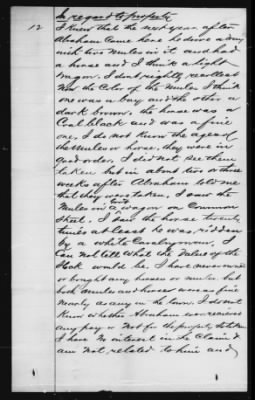 In regard to property
12
I knew that the next year after
Abraham came here he drove a dray
with two mules in it and had
a horse and I think a light
wagon. I don't rightly recollect
was the color of the mules I think
one was a bay and the other a
dark brown. the horse was a
Coal black and was a fine
one, I do not know the age of
the mules or horse, they were in
good order, I did not see them
taken but in about two or three
weeks after Abraham told me
that they were taken, I saw the
mules in a wagon on Common
Street. I saw the horse twenty
times at least he was ridden
by a white Cavalryman, I
can not tell what the value of the
Stock would be, I have never owned
or bought any horses or mules but
both mules and horses was as fine
nearly as any in the town. I do not
know whether Abraham ever received
any pay or not for the property
I have no interest in the claim I
am not related to him and